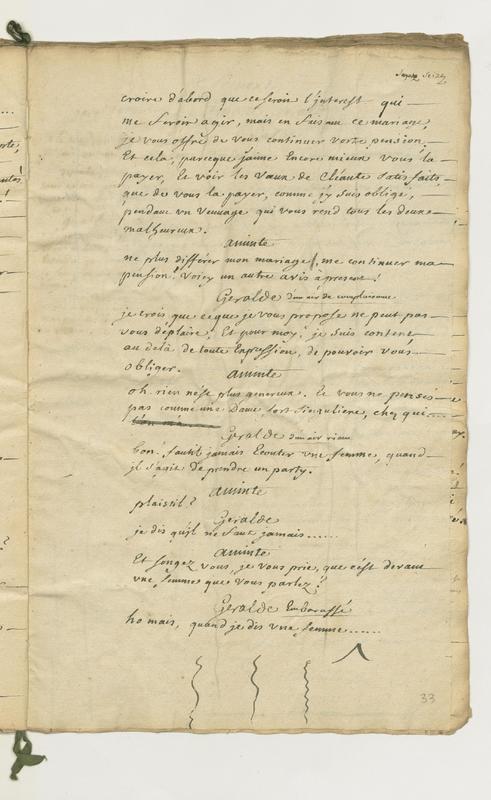 croire d'abord que ce seroit l'interest qui
me feroit agir, mais en faisant ce mariage,
je vous offre de vous continuer votre pension.
Et cela, parceque j'aime Encore mieux vous la
payer, Et voir les vœux de Cléante satisfaits,
que de vous la payer, comme j'y suis obligé,
pendant un veuvage qui vous rend tous les deux
malheureux.
aminte
ne plus différer mon mariage, me continuer ma
pension! Voicy un autre avis à present!
Geralde d'un air de complaisance
je crois que ce que je vous propose ne peut pas
vous déplaire, Et pour moy, je suis content
au delà de toute Expression, de pouvoir vous
obliger.
aminte
oh rien n'est plus genereux. Et vous ne pensés
pas comme une Dame fort singuliere, chez qui....
Geralde d'un air riant
bon! faut-il jamais Ecouter une femme, quand
il s'agit de prendre un party.
aminte
plaistil?
Geralde
je dis qu'il ne faut jamais......
aminte
Et songez vous, je vous prie, que c'est devant
une femme que vous parlez!
Geralde Embarassé
ho mais, quand je dis une femme......
33